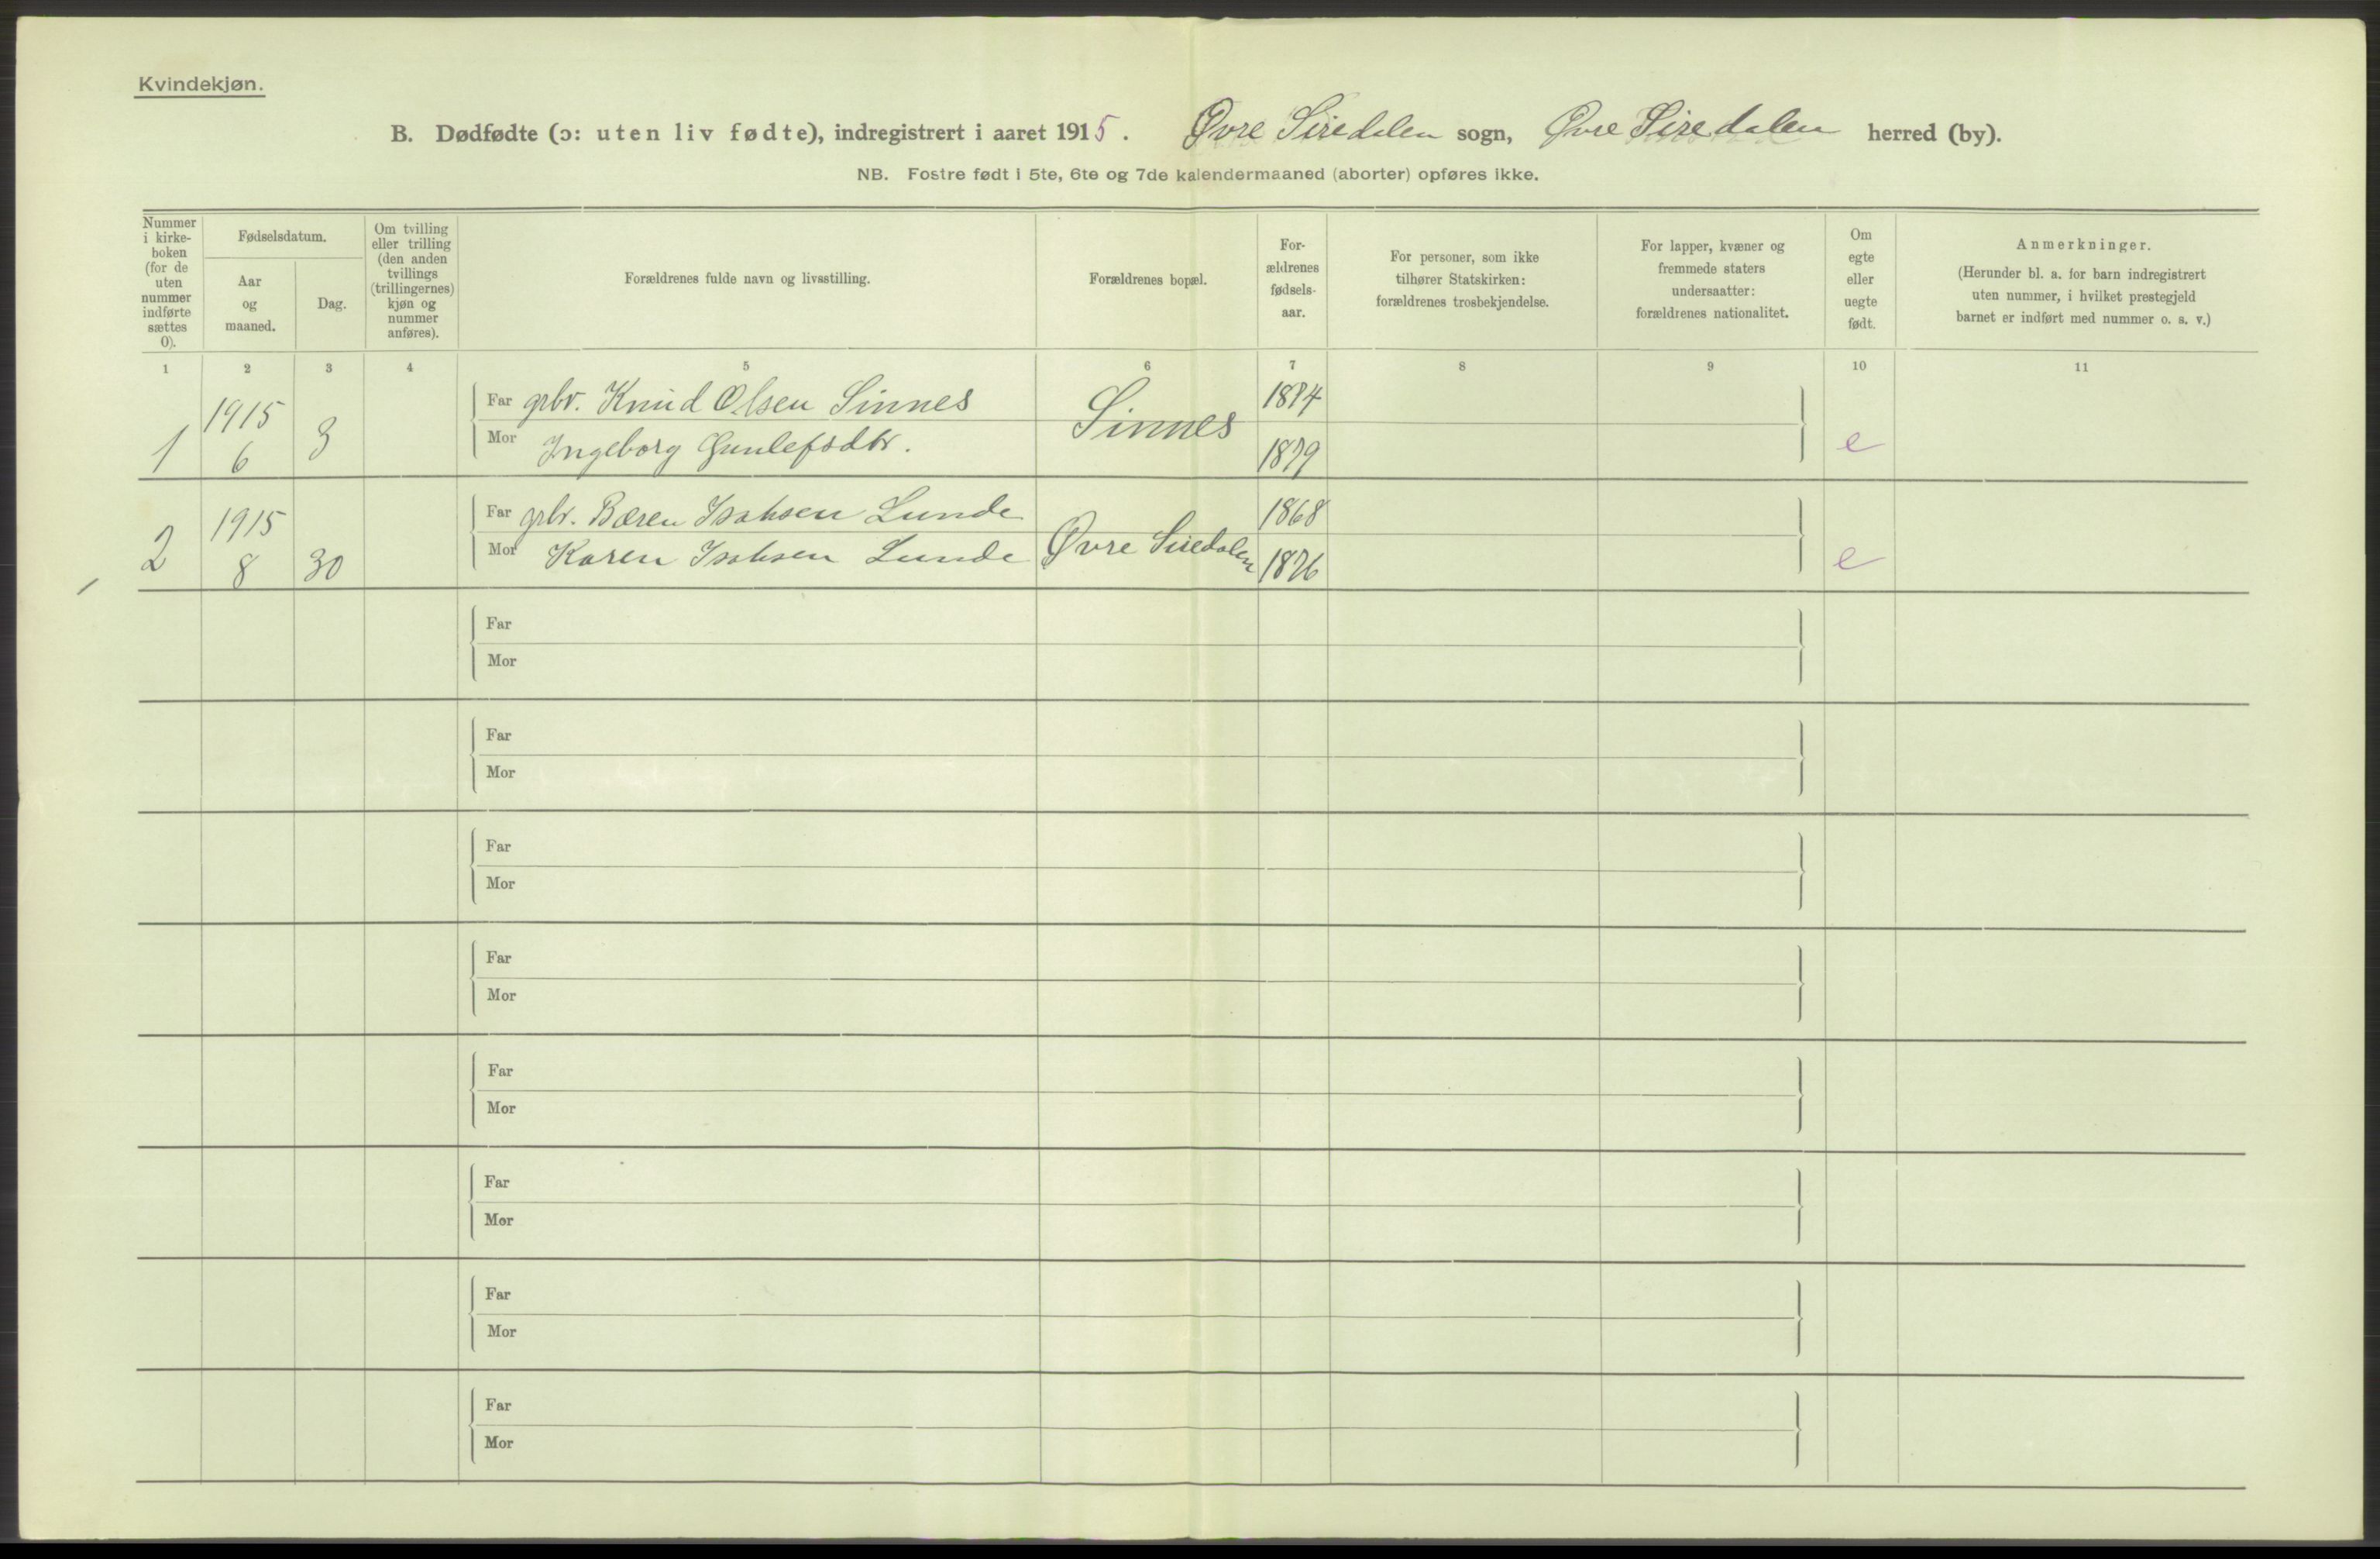 Kvindekjøn.
B. Dødfødte (ɔ: uten liv fødte), indregistrert i aaret 1915. Øvre Siredalen sogn, Øvre Siredalen herred (by).
NB. Fostre født i 5te, 6te og 7de kalendermaaned (aborter) opføres ikke.
Nummer
i kirke-
boken
(for de
uten
nummer
indførte
sættes
0).
Fødselsdatum.
Aar
og
maaned.
Dag.
Om tvilling
eller trilling
(den anden
tvillings
(trillingernes)
kjøn og
nummer
anføres).
Forældrenes fulde navn og livsstilling.
Forældrenes bopæl.
For-
ældrenes
fødsels-
aar.
For personer, som ikke
tilhører Statskirken:
forældrenes trosbekjendelse.
For lapper, kvæner og
fremmede staters
undersaatter:
forældrenes nationalitet.
Om
egte
eller
uegte
født.
Anmerkninger.
(Herunder bl. a. for barn indregistrert
uten nummer, i hvilket prestegjeld
barnet er indført med nummer o. s. v.)
1 2 3 4 5 6 7 8 9 10 11
1 1915 6 3
Far gbr. Knud Olsen Sinnes
Mor Ingeborg Gunlefsdtr.
Sinnes
1874
1879
e
2 1915 8 30
Far gbr. Bæren Isaksen Lunde
Mor Karen Isaksen Lunde
Øvre Siredalen
1868
1876
e
Far
Mor
Far
Mor
Far
Mor
Far
Mor
Far
Mor
Far
Mor
Far
Mor
Far
Mor